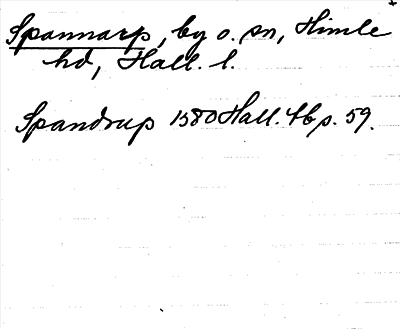 Spannarp, by o. sn, Himle
hd, Hall. l.
Spandrup 1580 Hall. tb s. 59.